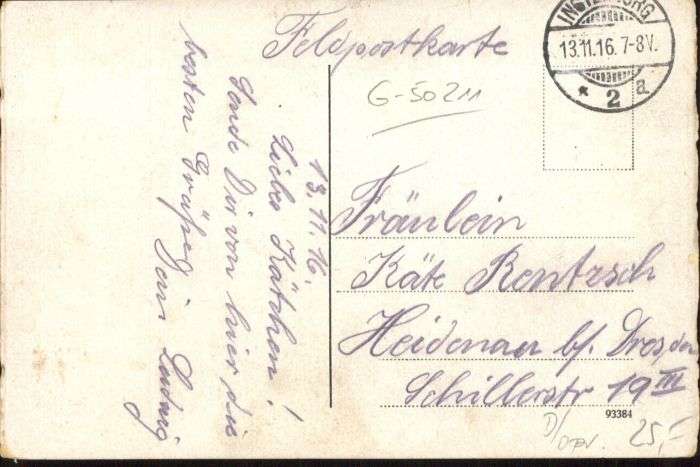 Feldpostkarte
INSTERBURG
13.11.16. 7-8V.
* 2 a
G-50211
13.11.16.
Liebes Kätchen!
Sende Dir von hier die
besten Grüße Dein Ludwig
Fräulein
Käte Rentzsch
Heidenau b/ Dresden
Schillerstr 19 III
93384
25,-